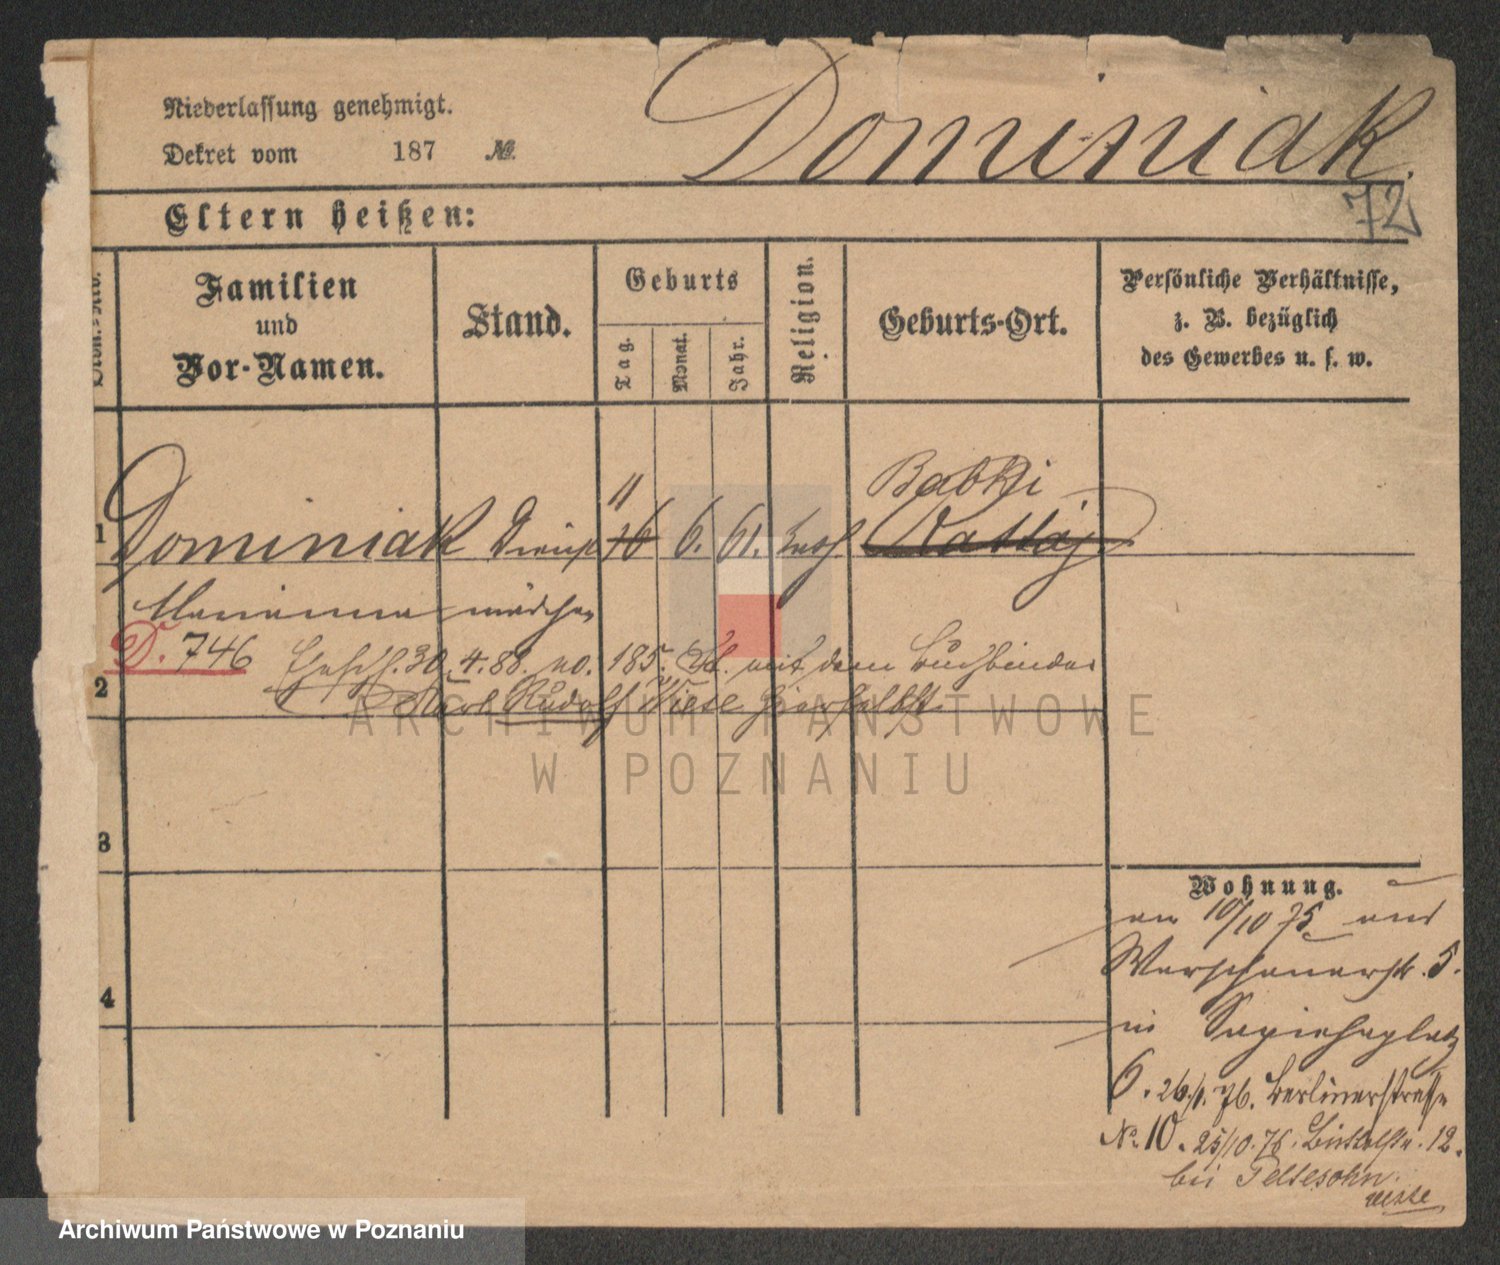 Niederlassung genehmigt.
Dekret vom 187 №
Dominiak.
72
Eltern heißen:
Familien
und
Vor-Namen.
Stand.
Geburts
Tag.
Monat.
Jahr.
Religion.
Geburts-Ort.
Persönliche Verhältnisse,
z. B. bezüglich
des Gewerbes u. s. w.
Babki
11
1 Dominiak Dienst 16 6. 61. kath Rattaj
Marianna mädchen
D. 746 Ehesch. 30.4.88. no. 185. mit dem Buchbinder
2
Karl Rudolf Wiese hierselbst
3
4
Wohnung.
am 10/10 75 aus
Warschauerstr. 5.
in Sapiehaplatz
6. 26/1. 76. Berlinerstrasse
No. 10. 25/10. 76. 12.
bei Peltesohn.
ARCHIWUM PAŃSTWOWE
W POZNANIU
Archiwum Państwowe w Poznaniu